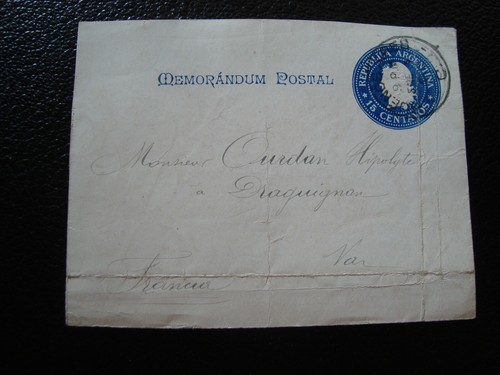 MEMORÁNDUM POSTAL
REPUBLICA ARGENTINA
15 CENTAVOS
Monsieur Ourdan Hipolyte
a Draguignan
Var